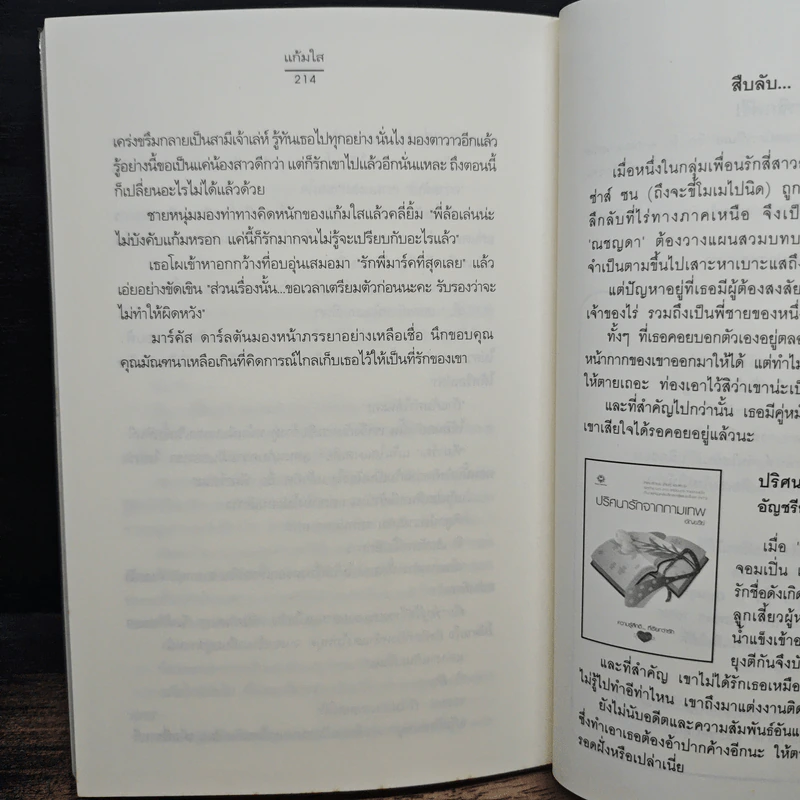 แก้มใส
214
เคร่งขรึมกลายเป็นสามีเจ้าเล่ห์ รู้ทันเธอไปทุกอย่าง นั่นไง มองตาวาวอีกแล้ว
รู้อย่างนี้ขอเป็นแค่น้องสาวดีกว่า แต่ก็รักเขาไปแล้วอีกนั่นแหละ ถึงตอนนี้
ก็เปลี่ยนอะไรไม่ได้แล้วด้วย
ชายหนุ่มมองท่าทางคิดหนักของแก้มใสแล้วคลี่ยิ้ม "พี่ล้อเล่นน่ะ
ไม่บังคับแก้มหรอก แค่นี้ก็รักมากจนไม่รู้จะเปรียบกับอะไรแล้ว"
เธอโผเข้าหาอกกว้างที่อบอุ่นเสมอมา "รักพี่มาร์คที่สุดเลย" แล้ว
เอ่ยอย่างขัดเขิน "ส่วนเรื่องนั้น...ขอเวลาเตรียมตัวก่อนนะคะ รับรองว่าจะ
ไม่ทำให้ผิดหวัง"
มาร์คัส ดาร์ลตันมองหน้าภรรยาอย่างเหลือเชื่อ นึกขอบคุณ
คุณมัณฑนาเหลือเกินที่คิดการณ์ไกลเก็บเธอไว้ให้เป็นที่รักของเขา
สืบลับ...
เมื่อหนึ่งในกลุ่มเพื่อนรักสี่สาว
ซ่าส์ ซน (ถึงจะขี้โมเมไปนิด) ถูก
ลึกลับที่ไร่ทางภาคเหนือ จึงเป็
'ณชญดา' ต้องวางแผนสวมบทบ
จำเป็นตามขึ้นไปเสาะหาเบาะแสถึง
แต่ปัญหาอยู่ที่เธอมีผู้ต้องสงสัย
เจ้าของไร่ รวมถึงเป็นพี่ชายของหนึ่
ทั้งๆ ที่เธอคอยบอกตัวเองอยู่ตลอ
หน้ากากของเขาออกมาให้ได้ แต่ทำไม
ให้ตายเถอะ ท่องเอาไว้สิว่าเขาน่ะเป็
และที่สำคัญไปกว่านั้น เธอมีคู่หมั
เขาเสียใจได้รอคอยอยู่แล้วนะ
ปริศนารักจากกามเทพ
ความรู้สึกดี... ที่เรียกว่ารัก
ปริศน
อัญชรี
เมื่อ '
จอมเปิ่น
รักชื่อดังเกิด
ลูกเสี้ยวผู้ห
น้ำแข็งเข้าอ
ยุงตีกันจึงบั
และที่สำคัญ เขาไม่ได้รักเธอเหมือ
ไม่รู้ไปทำอีท่าไหน เขาถึงมาแต่งงานติด
ยังไม่นับอดีตและความสัมพันธ์อันแ
ซึ่งทำเอาเธอต้องอ้าปากค้างอีกนะ ให้ต
รอดฝั่งหรือเปล่าเนี่ย